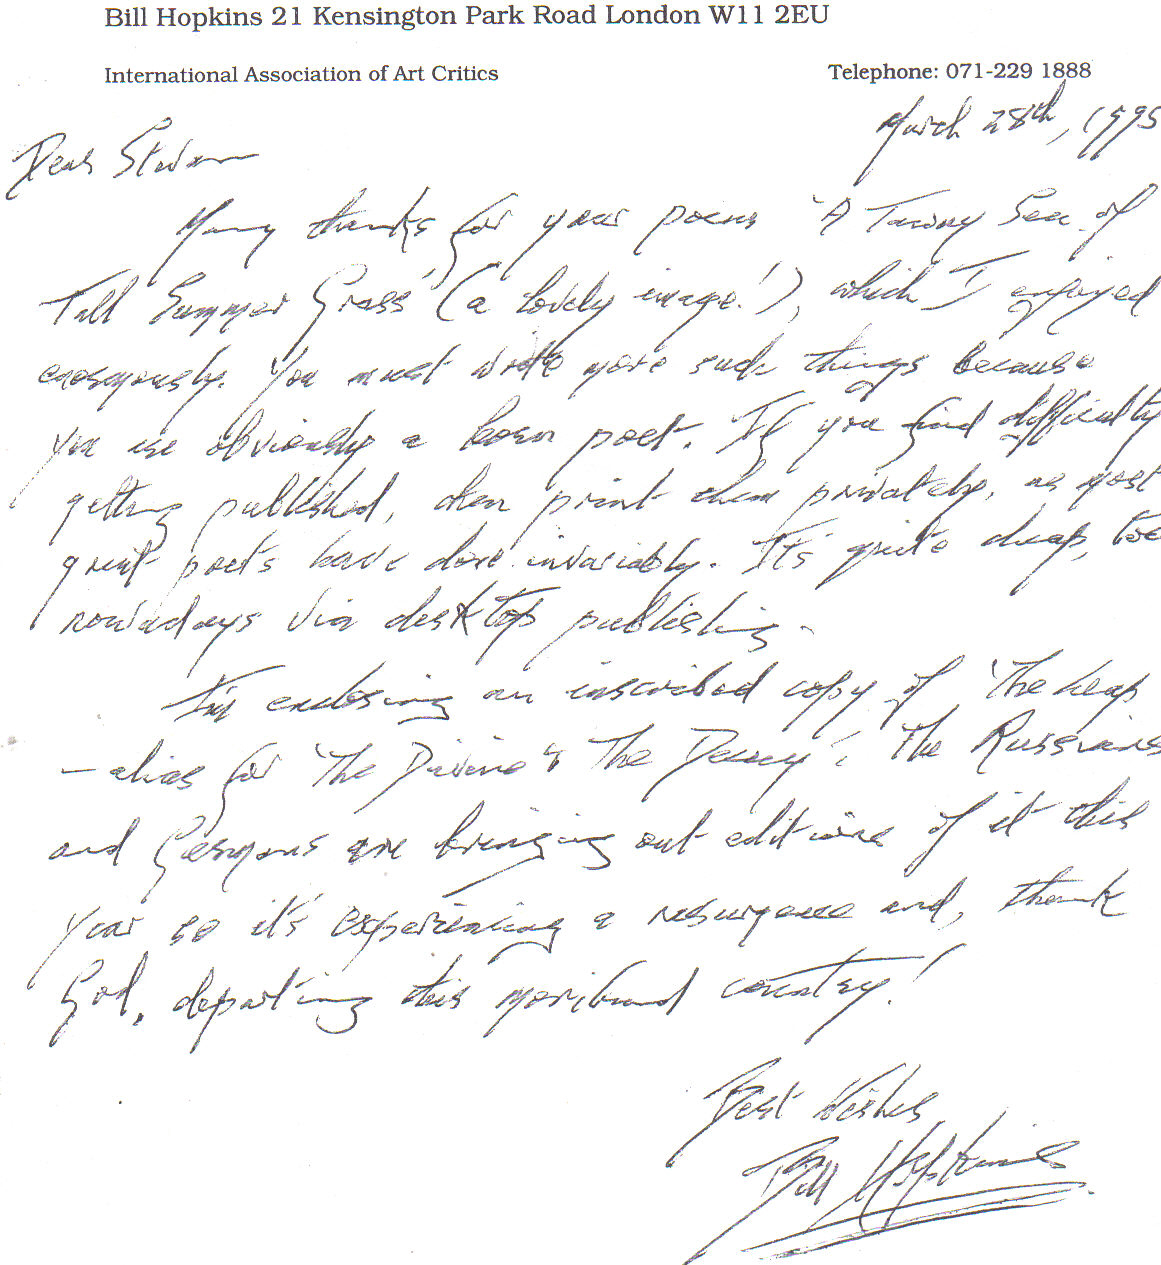 Bill Hopkins 21 Kensington Park Road London W11 2EU
International Association of Art Critics
Telephone: 071-229 1888
March 28th, 1995
Dear
Many thanks for your poems 'A Tawny Sea of
Tall Summer Grass' (a lovely image!), which I enjoyed
enormously. You must write more such things because
you are obviously a born poet. If you find difficulty
getting published, then print them privately, as most
great poets have done invariably. It's quite cheap, too
nowadays via desktop publishing.
I'm enclosing an inscribed copy of 'The Leap'
— alias for 'The Divine & The Decay'. The Russians
and Germans are bringing out editions of it this
year so it's experiencing a resurgence and, thank
God, departing this moribund country!
Best Wishes
Bill Hopkins